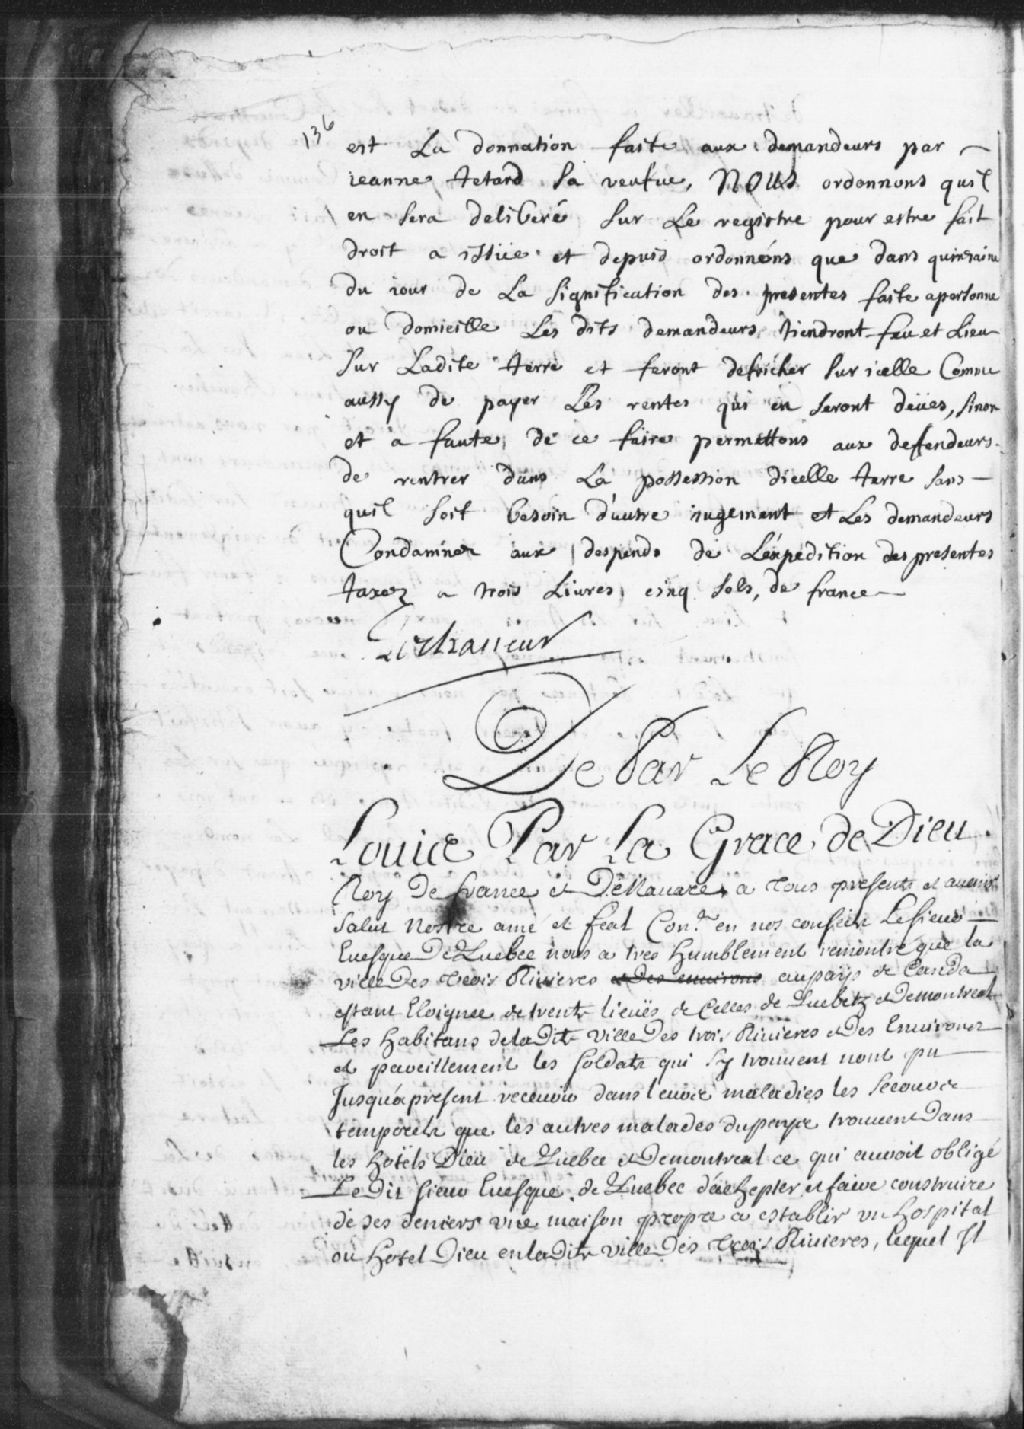 136
est La donnation faite aux demandeurs par
ieanne tetard Sa veufue, NOUS ordonnons quil
en Sera deliberé Sur Le registre pour estre fait
droit a issue et depuis ordonnéns que dans quinzaine
du iour de La Signification des presentes faite apersonne
ou domicille Les dits demandeurs tiendront feu et Lieu
Sur Ladite terre et feront defricher Sur icelle Comme
aussy de payer Les rentes qui en Seront deües, Sinon
et a faute de ce faire permettons aux deffendeurs
de rentrer dans La possession dicelle terre Sans
quil Soit besoin d'autre iugement et Les demandeurs
Condamnez aux despends de L'expedition des presentes
taxez a trois Livres cinq Sols de france
Lechasseur
De Par Le Roy
Louice Par La Grace de Dieu
Roy De france et De Nauare a tous presents et auenir
Salut Nostre amé et feal Con.er en nos conseils Le sieur
Euesque De Quebec nous a tres humblement remontré que la
ville Des Trois Riuieres et des enuirons au païs de Canada
estant Eloignee de trente lieuës de Celles de Quebek et De montreal
Les habitans de la dite ville Des trois Riuieres et Des Enuirons
et pareillement les soldats qui sy trouuent nont pu
Jusqu'a present receuoir dans leurs maladies les secours
temporels que les autres malades du pays trouuent Dans
les hotels Dieu de Quebec et De montreal ce qui auroit obligé
Le Dit sieur Euesque de Quebec d'achepter et faire construire
de ses deniers vne maison propre a establir vn hospital
ou hotel Dieu en la dite ville Des Trois Riuieres, lequel Il